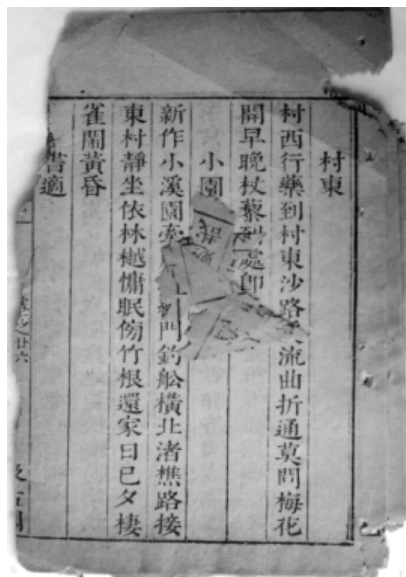 村東
村西行藥到村東沙路流曲折通莫問梅花
開早晚杖藜到處即
小園
新作小溪園門釣舩橫北渚樵路接
東村靜坐依林樾慵眠傍竹根還家日已夕棲
雀鬧黃昏
書適
廿六